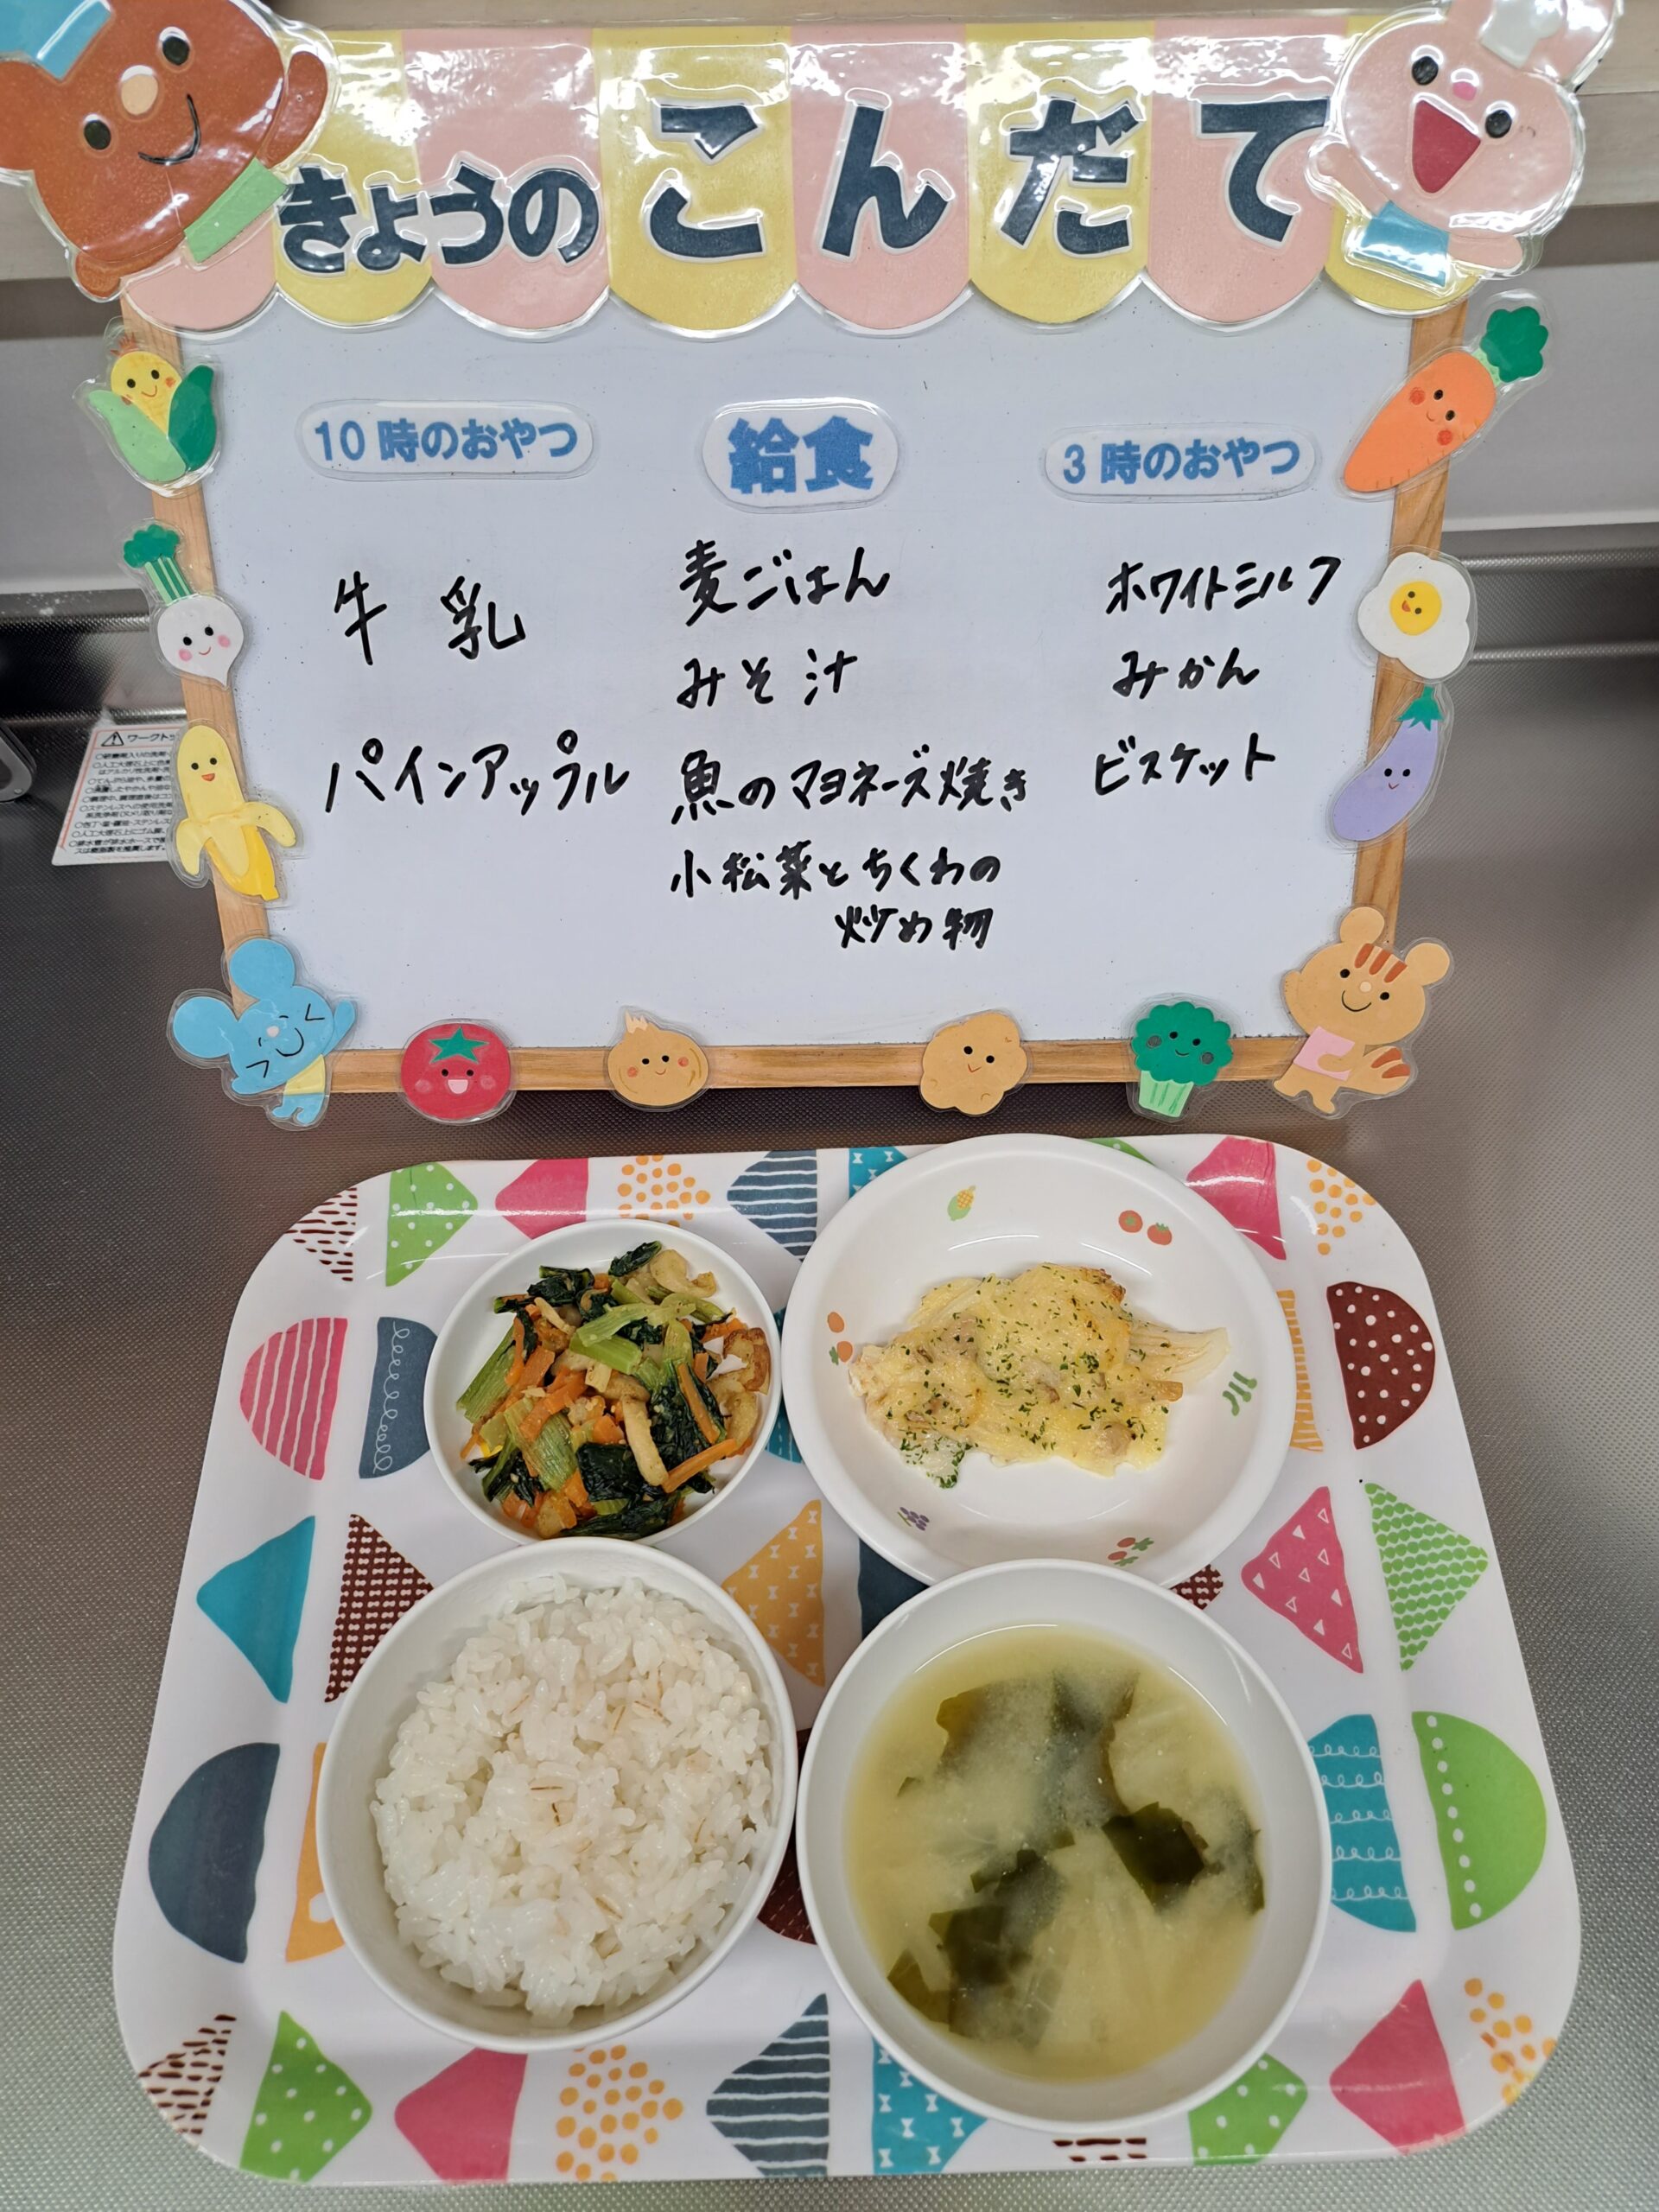 きょうの こんだて
10時のおやつ
牛乳
パインアップル
給食
麦ごはん
みそ汁
魚のマヨネーズ焼き
小松菜とちくわの
炒め物
3時のおやつ
ホワイトミルク
みかん
ビスケット